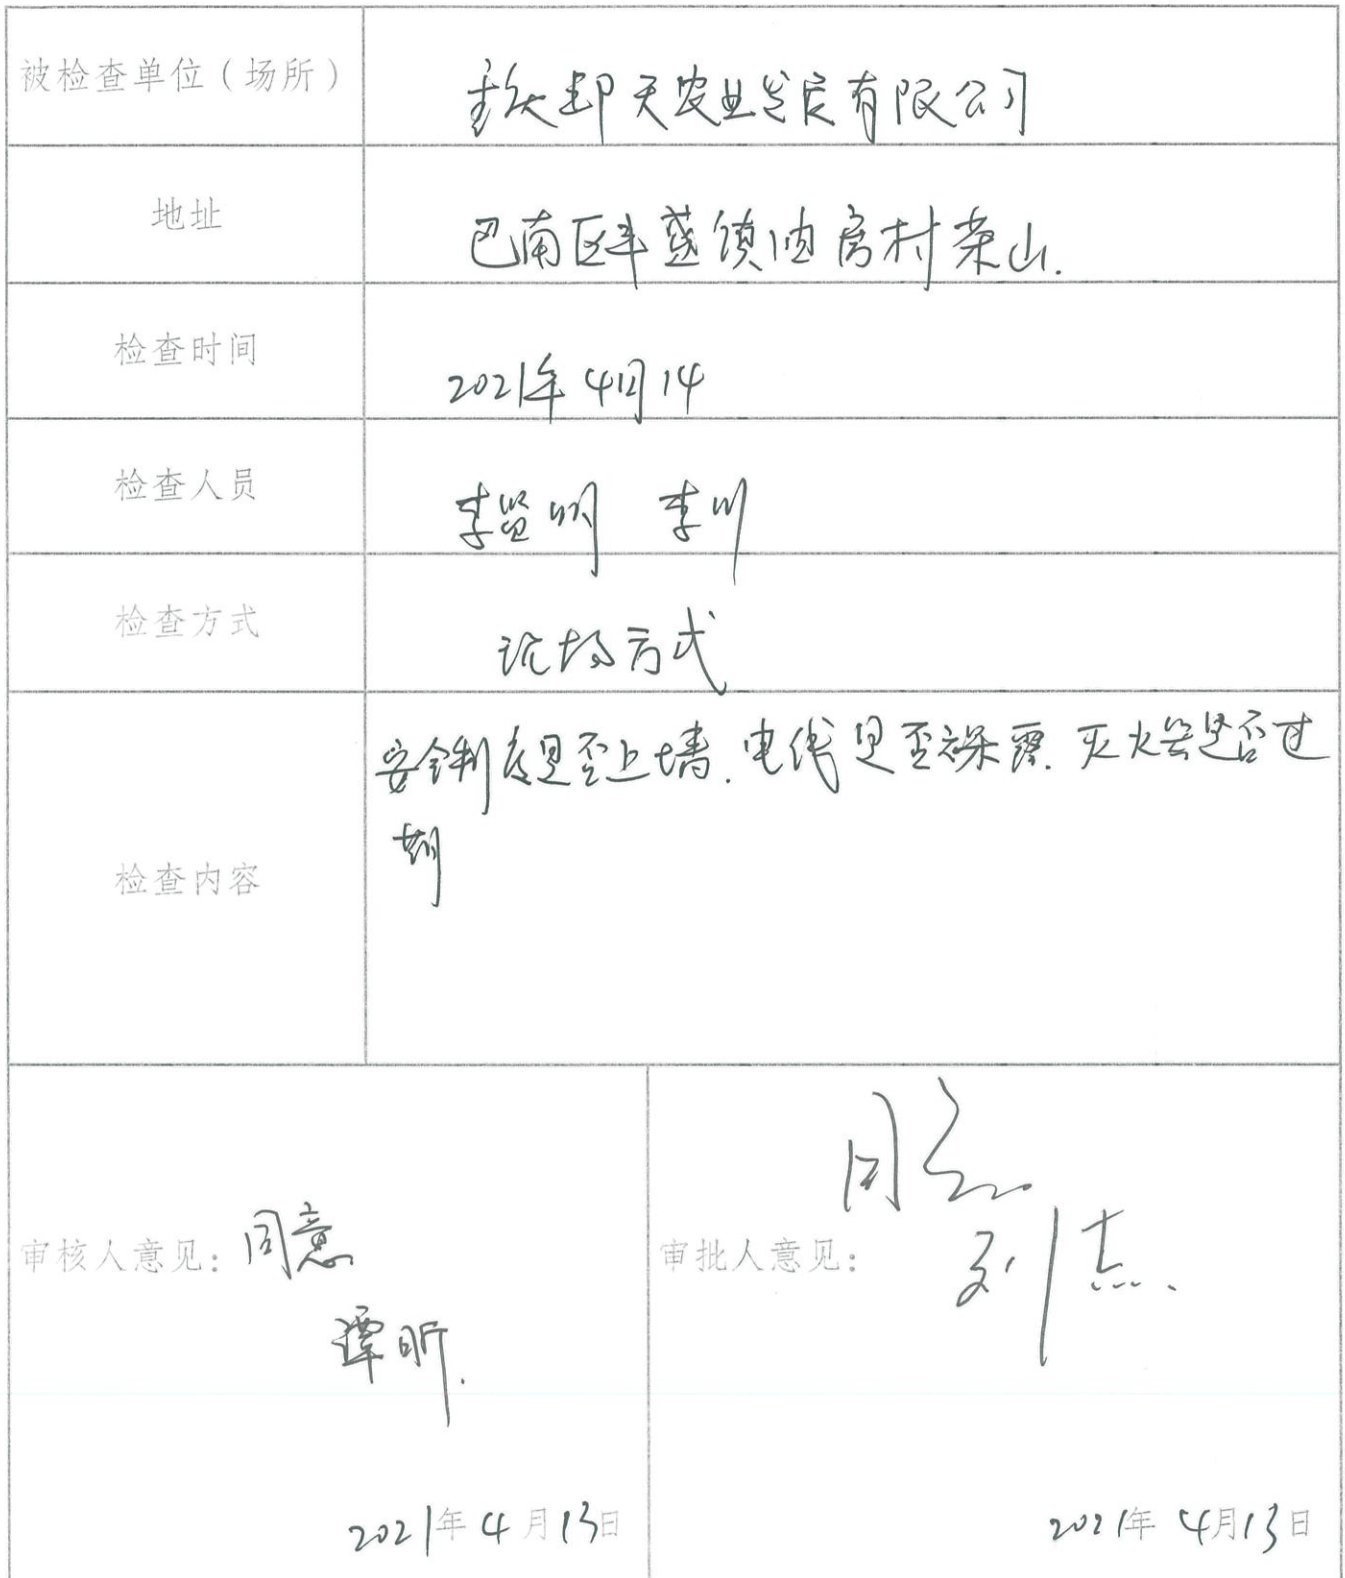 被检查单位（场所）
天农业发展有限公司
地址
巴南区丰盛镇油房村荣山.
检查时间
2021年4月14
检查人员
李贤明 李川
检查方式
现场方式
检查内容
安全制度是否上墙.电线是否裸露.灭火器是否过
期
审核人意见：同意
谭昕.
2021年4月13日
审批人意见：同意
刘杰.
2021年4月13日